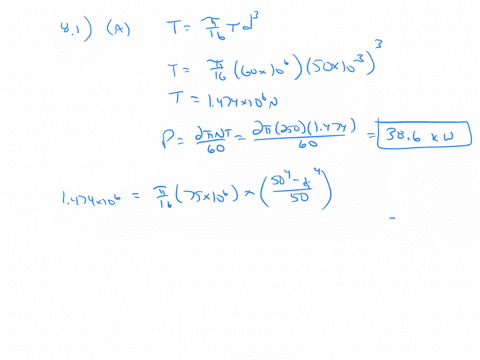 8.1) (A) T = π/16 τ d³
T = π/16 (60x10⁶)(50x10⁻³)³
T = 1.474x10⁶ N
P = 2πNT/60 = 2π(250)(1.474)/60 = 38.6 KW
1.474x10⁶ = π/16 (75x10⁶) x (50⁴-dᵢ⁴/50)
=